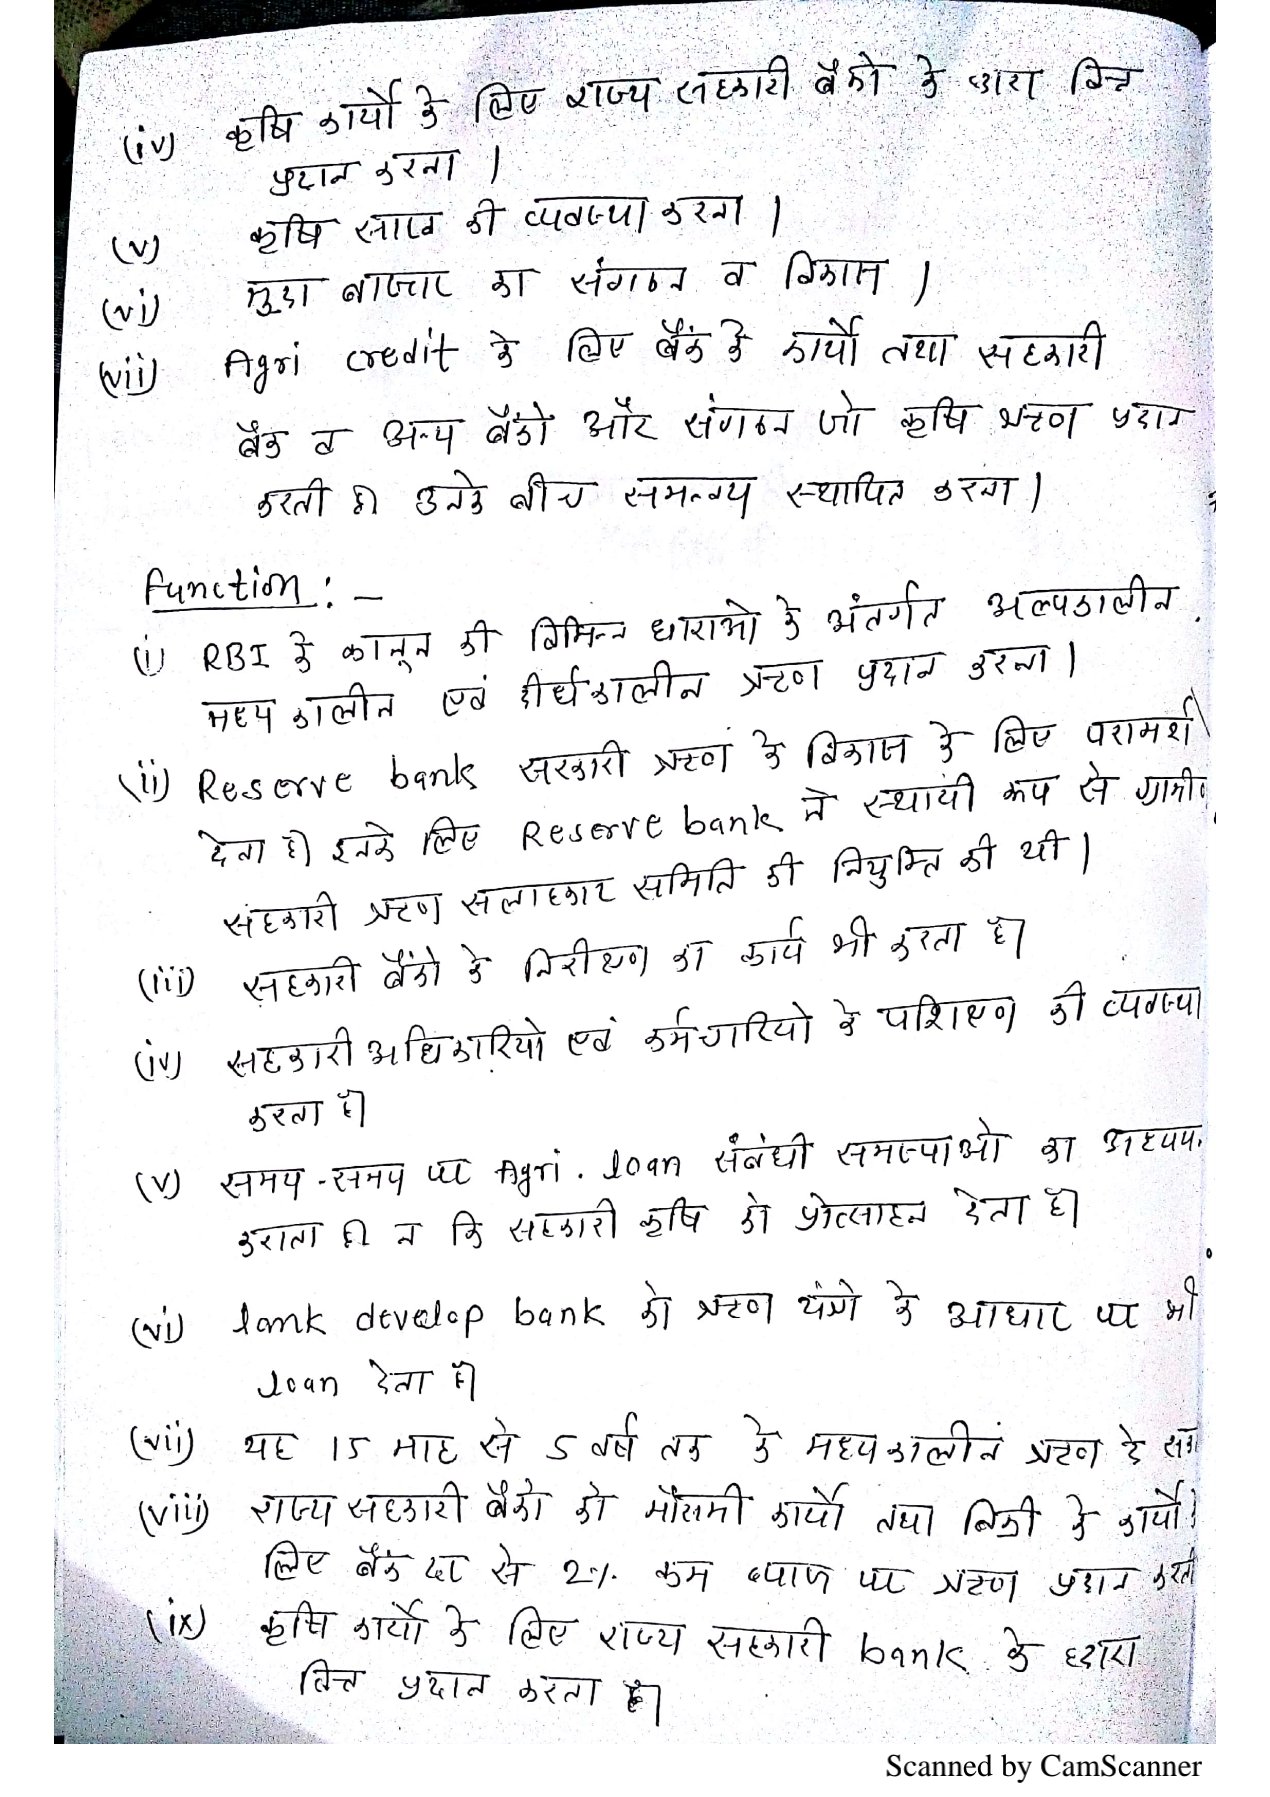 (iv) कृषि कार्यो के लिए राज्य सहकारी बैंको के द्वारा वित्त
प्रदान करना ।
(v) कृषि साख की व्यवस्था करना ।
(vi) मुद्रा बाजार का संगठन व विकास ।
(vii) Agri credit के लिए बैंक के कार्यो तथा सहकारी
बैंक व अन्य बैंको और संगठन जो कृषि ऋण प्रदान
करती हो उनके बीच समन्वय स्थापित करना ।
Function : -
(i) RBI के कानून की विभिन्न धाराओ के अंतर्गत अल्पकालीन,
मध्य कालीन एवं दीर्घकालीन ऋण प्रदान करना ।
(ii) Reserve bank सरकारी ऋण के विकास के लिए परामर्श
देता है। इनके लिए Reserve bank ने स्थायी रूप से ग्रामीण
सहकारी ऋण सलाहकार समिति की नियुक्ति की थी ।
(iii) सहकारी बैंको के निरीक्षण का कार्य भी करता है।
(iv) सहकारी अधिकारियो एवं कर्मचारियो के पशिक्षण की व्यवस्था
करता है।
(v) समय - समय पर Agri. loan संबंधी समस्याओ का अध्यय
कराता ही न कि सहकारी कृषि को प्रोत्साहन देता है।
(vi) lank develop bank को ऋण पंत्रो के आधार पर भी
loan देता है।
(vii) यह 15 माह से 5 वर्ष तक के मध्यकालीन ऋण दे सक
(viii) राज्य सहकारी बैंको को मौसमी कार्यो तथा बिक्री के कार्यो के
लिए बैंक दर से 2% कम ब्याज पर ऋण प्रदान करती
(ix) कृषि कार्यो के लिए राज्य सहकारी bank के द्वारा
वित्त प्रदान करता है।
Scanned by CamScanner